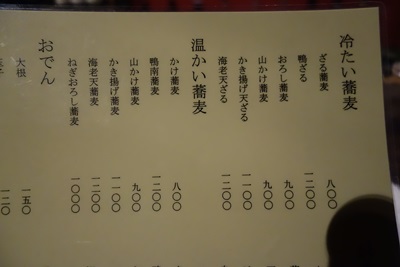 冷たい蕎麦
ざる蕎麦 八〇〇
鴨ざる 一二〇〇
おろし蕎麦 九〇〇
山かけ蕎麦 九〇〇
かき揚げ天ざる 一一〇〇
海老天ざる 一二〇〇
温かい蕎麦
かけ蕎麦 八〇〇
鴨南蕎麦 一二〇〇
山かけ蕎麦 九〇〇
かき揚げ蕎麦 一一〇〇
海老天蕎麦 一二〇〇
ねぎおろし蕎麦 一〇〇〇
おでん
大根 一五〇
玉子 一二〇